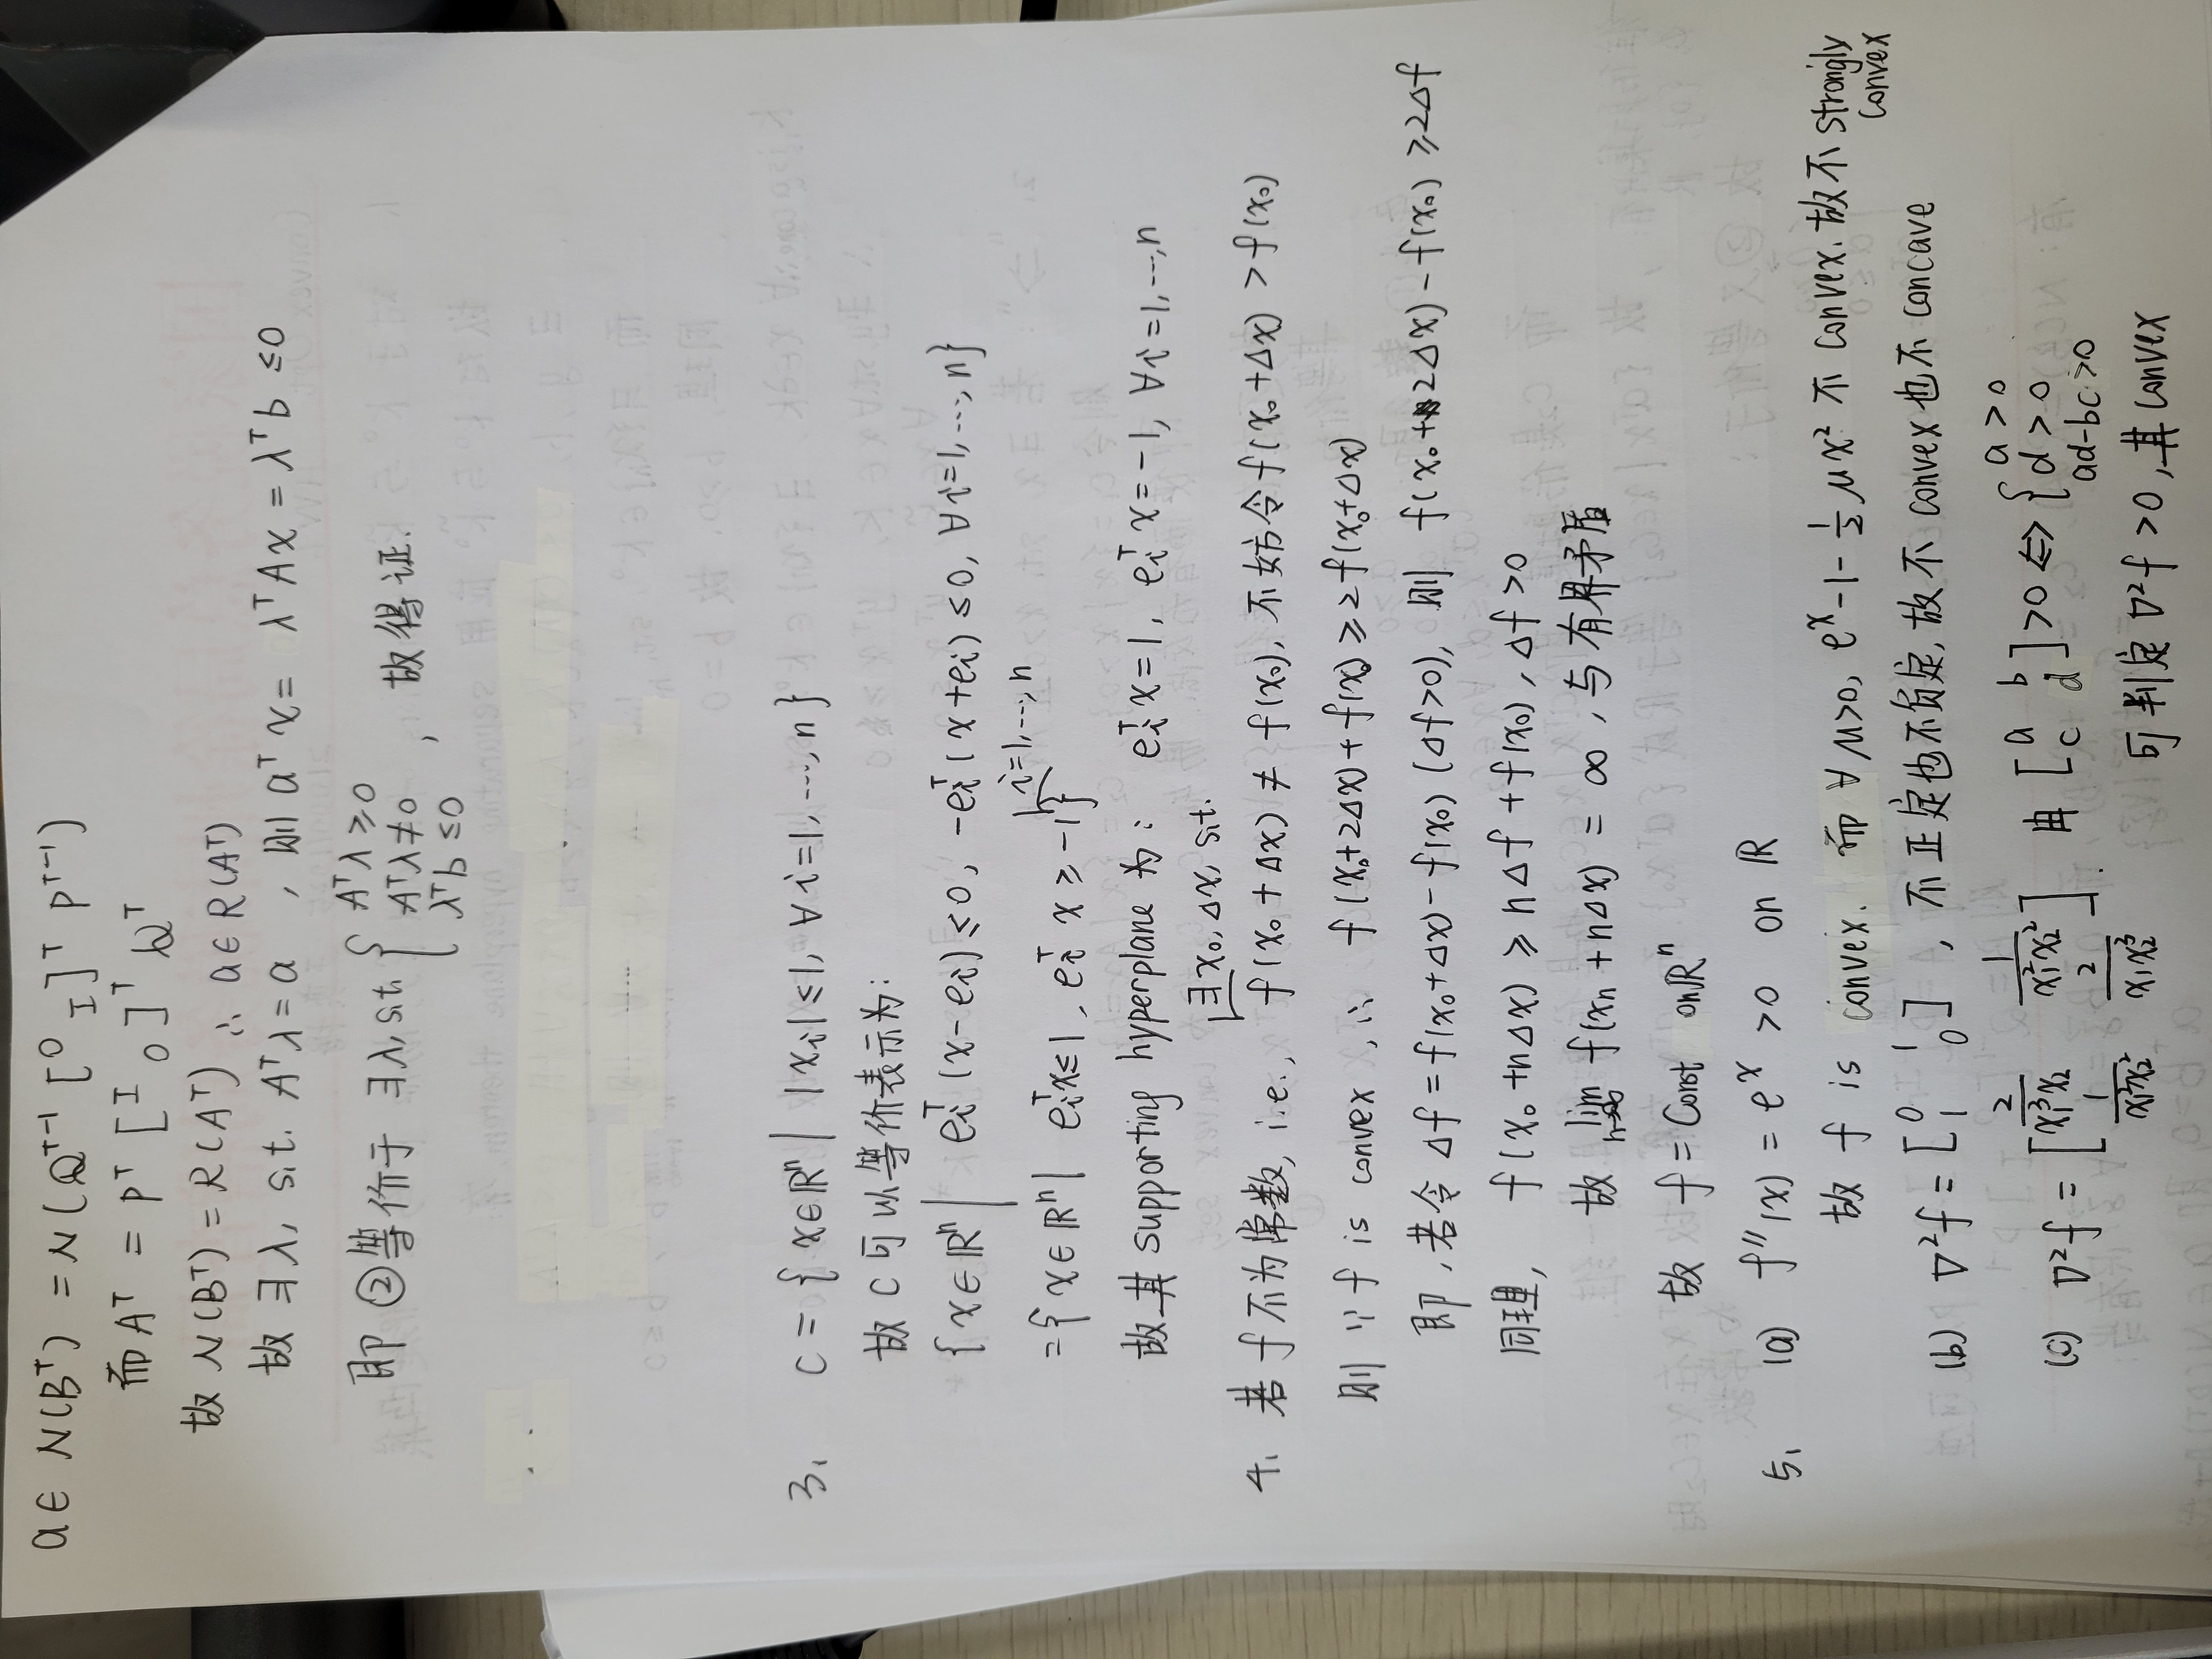 a ∈ N(Bᵀ) = N(Qᵀ⁻¹ [0 I]ᵀ Pᵀ⁻¹)
而 Aᵀ = Pᵀ [I 0]ᵀ Qᵀ
故 N(Bᵀ) = R(Aᵀ) ∴ a∈R(Aᵀ)
故 ∃λ, s.t. Aᵀλ = a , 则 aᵀx = λᵀAx = λᵀb ≤0
即 ②等价于 ∃λ, s.t. { Aᵀλ ≥0
Aᵀλ≠0
λᵀb ≤0 , 故得证.
3. C = { x∈ℝⁿ | |xᵢ|≤1, ∀i=1, ..., n }
故 C 可以等价表示为:
{ x∈ℝⁿ | eᵢᵀ(x-eᵢ)≤0, -eᵢᵀ(x+eᵢ)≤0, ∀i=1, ..., n}
={ x∈ℝⁿ | eᵢᵀx≤1, eᵢᵀx ≥ -1, i=1, ..., n}
故其 supporting hyperplane 为: eᵢᵀx=1, eᵢᵀx=-1, ∀i=1, ..., n
4. 若 f 不为常数, i.e., ∃x₀, Δx, s.t. f(x₀+Δx) ≠ f(x₀), 不妨令 f(x₀+Δx) > f(x₀)
则 ∵ f is convex, ∴ f(x₀+2Δx)+f(x₀) ≥ 2f(x₀+Δx)
即, 若令 Δf = f(x₀+Δx) - f(x₀) (Δf>0), 则 f(x₀+2Δx) - f(x₀) ≥2Δf
同理, f(x₀+nΔx) ≥ nΔf + f(x₀), Δf >0
故 lim n→∞ f(xₙ+nΔx) = ∞, 与有界矛盾
故 f = Const on ℝⁿ
5. (a) f″(x) = eˣ >0 on ℝ
故 f is convex. 而 ∀μ>0, eˣ-1-½μx² 不 convex. 故不 strongly convex
(b) ∇²f = [0 1; 1 0], 不正定也不负定, 故不 convex 也不 concave
(c) ∇²f = [2/(x₁³x₂) 1/(x₁²x₂²); 1/(x₁²x₂²) 2/(x₁x₂³)]. 由 [a b; c d] >0 ⇔ { a >0
d >0
ad-bc >0
可判定 ∇²f >0, 其 convex